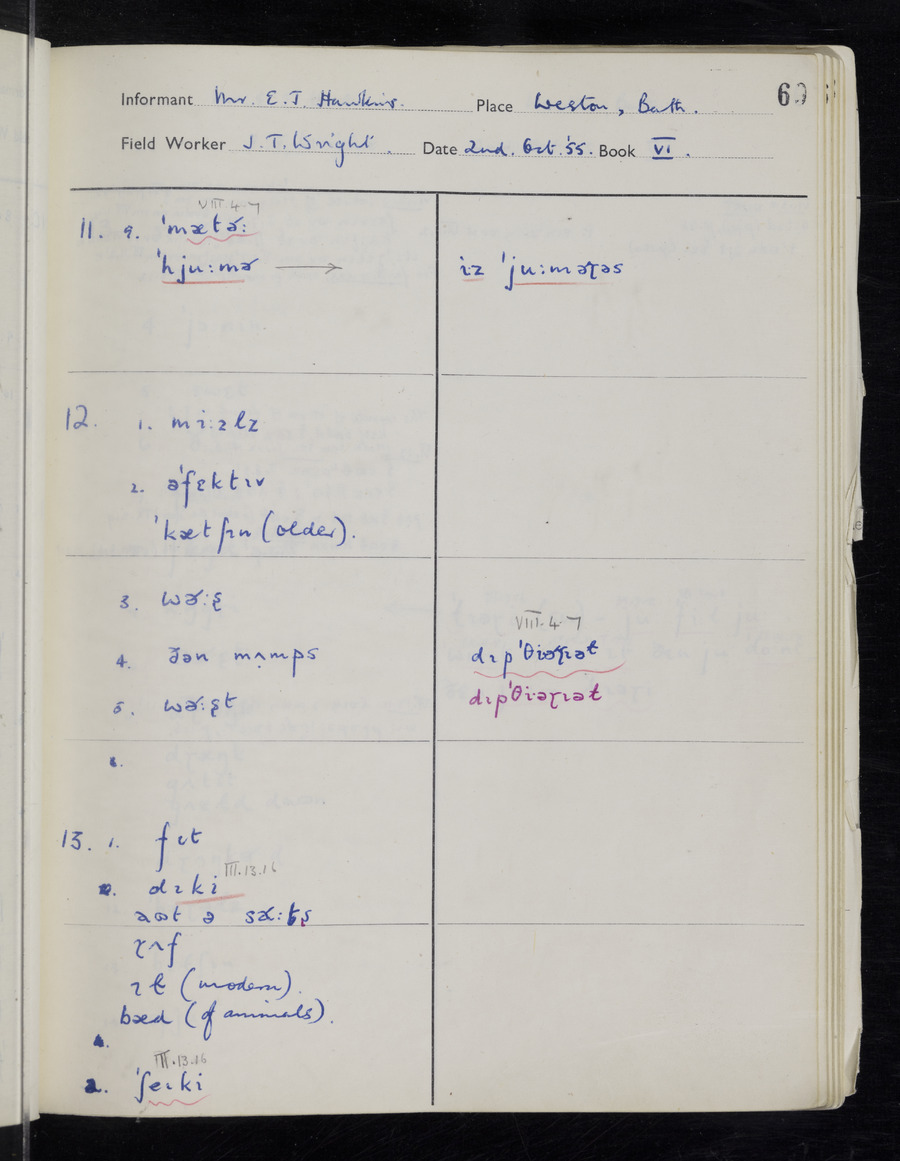 Informant Mr. E. J. Hawkins. Place Weston, Bath. 69
Field Worker J. T. Wright. Date 2nd. Oct. '55. Book VI.
VIII 4 7
11. 9. ˈmætɚː
ˈhjuːmɚ → iz ˈjuːməɽəs
12. 1. miːzlz
2. əˈfɛktɪv
ˈkætʃɪn (older).
3. wɚːʂ
VIII. 4 7
4. ðən mʌmps dɪpˈθiəɽɪət
5. wɚːʂt dɪpˈθiəɽɪət
6.
13. 1. fɪt
III.13.16
dɪki
ʌʊt ə
ɽʌf
ɪt (modern).
bæd (of animals).
III.13.16
2. ˈʃeɪki